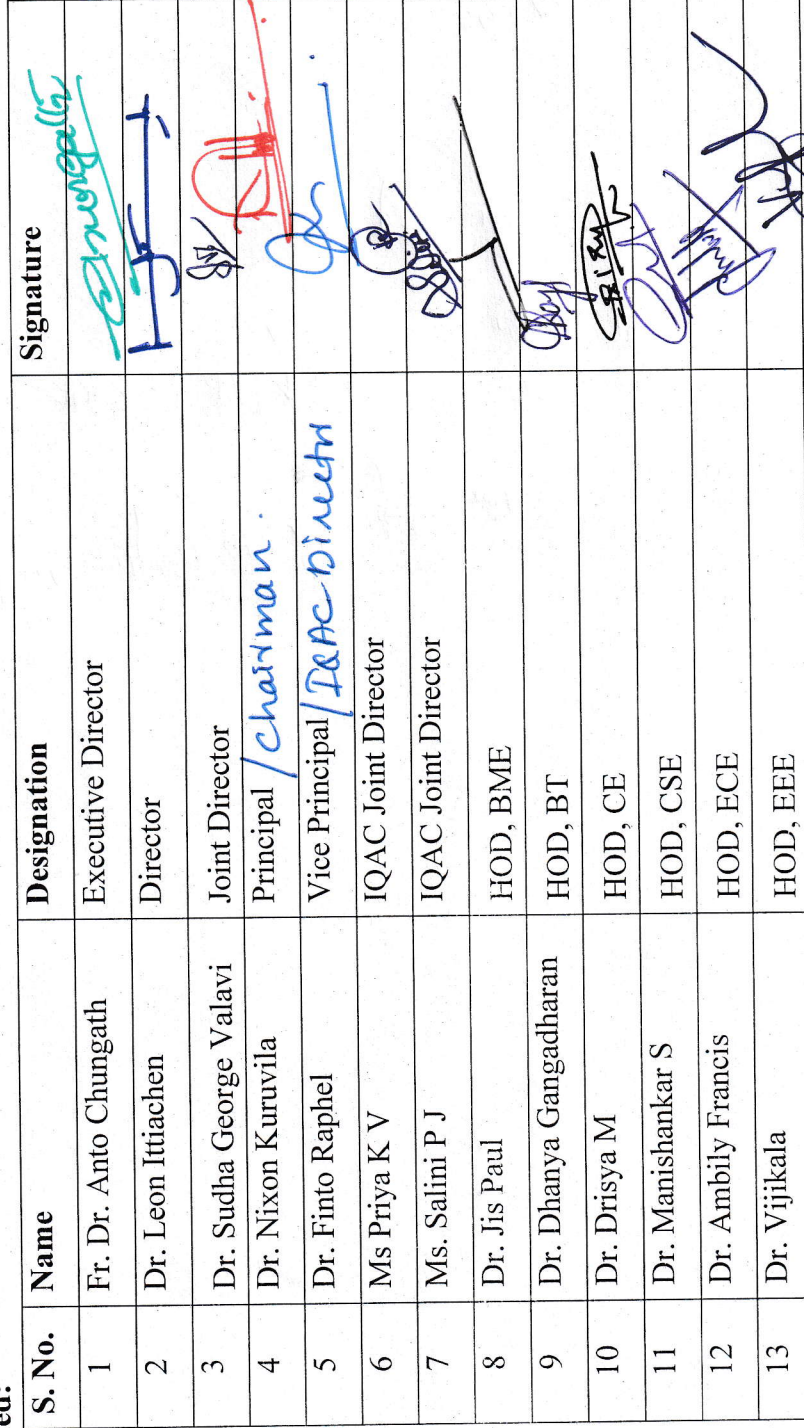 ed:
S. No. Name Designation Signature
1 Fr. Dr. Anto Chungath Executive Director
2 Dr. Leon Ittiachen Director
3 Dr. Sudha George Valavi Joint Director
4 Dr. Nixon Kuruvila Principal /Chairman.
5 Dr. Finto Raphel Vice Principal /IQAC Director
6 Ms Priya K V IQAC Joint Director
7 Ms. Salini P J IQAC Joint Director
8 Dr. Jis Paul HOD, BME
9 Dr. Dhanya Gangadharan HOD, BT
10 Dr. Drisya M HOD, CE
11 Dr. Manishankar S HOD, CSE
12 Dr. Ambily Francis HOD, ECE
13 Dr. Vijikala HOD, EEE